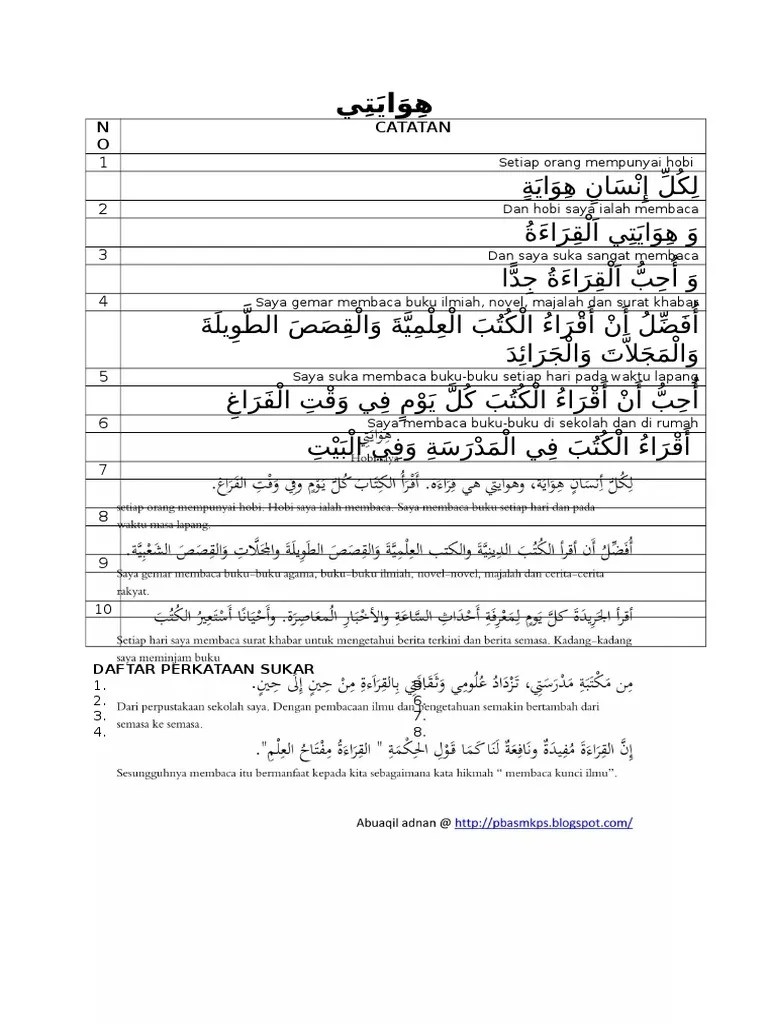 هِوَايَتِي
NO
CATATAN
1
Setiap orang mempunyai hobi
لِكُلِّ إِنْسَانٍ هِوَايَةٍ
2
Dan hobi saya ialah membaca
وَ هِوَايَتِي اَلْقِرَاءَةُ
3
Dan saya suka sangat membaca
وَ أُحِبُّ اَلْقِرَاءَةُ جِدًّا
4
Saya gemar membaca buku ilmiah, novel, majalah dan surat khabar
أُفَضِّلُ أَنْ أَقْرَاءُ الْكُتُبَ الْعِلْمِيَّةَ وَالْقِصَصَ الطَّوِيلَةَ
وَالْمَجَلاَّتَ وَالْجَرَائِدَ
5
Saya suka membaca buku-buku setiap hari pada waktu lapang
أُحِبُّ أَنْ أَقْرَاءُ الْكُتُبَ كُلَّ يَوْمٍ فِي وَقْتِ الْفَرَاغِ
6
Saya membaca buku-buku di sekolah dan di rumah
هِوَايَتِي
أَقْرَاءُ الْكُتُبَ فِي الْمَدْرَسَةِ وَفِي الْبَيْتِ
Hobi saya
7
لِكُلِّ أِنسَانٍ هِوَايَة، وهوايتي هي قِرَاءَه. أَقْرَأُ الكِتَابَ كُلَّ يَوْمٍ وفِي وَقْتِ الفَرَاغ.
setiap orang mempunyai hobi. Hobi saya ialah membaca. Saya membaca buku setiap hari dan pada
8
waktu masa lapang.
أُفَضِّلُ أَن أقرأ الكُتُبَ الدِينِيَّةَ والكتب العِلْمِيَّةَ وَالقِصَصَ الطَوِيلَةَ وَالمَجَلَّاتِ وَالقِصَصَ الشَعْبِيَّة.
9
Saya gemar membaca buku-buku agama, buku-buku ilmiah, novel-novel, majalah dan cerita-cerita
rakyat.
10
أقرأ الجَرِيدَةَ كلَّ يَومٍ لِمَعْرِفَةِ أَحْدَاثِ السَّاعَةِ والأخْبَارِ الُمعَاصِرَة. وأَحْيَانًا أَسْتَعِيرُ الكُتُبَ
Setiap hari saya membaca surat khabar untuk mengetahui berita terkini dan berita semasa. Kadang-kadang
saya meminjam buku
DAFTAR PERKATAAN SUKAR
مِن مَكْتَبَةِ مَدْرَسَتِي، تَزْدَادُ عُلُومِي وَثَقَافَتِي بِالقِرَاَءةِ مِنْ حِينٍ إِلَى حِينٍ.
1.
2.
6.
Dari perpustakaan sekolah saya. Dengan pembacaan ilmu dan pengetahuan semakin bertambah dari
3.
7.
semasa ke semasa.
4.
8.
إِنَّ القِرَاءَةَ مُفِيدَةٌ ونَافِعَةٌ لَنَا كَمَا قَوْلِ الحِكْمَةِ " القِرَاءَةُ مِفْتَاحُ العِلْمِ".
Sesungguhnya membaca itu bermanfaat kepada kita sebagaimana kata hikmah “ membaca kunci ilmu”.
Abuaqil adnan @ http://pbasmkps.blogspot.com/